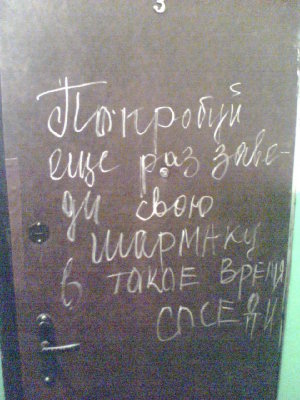 5
Попробуй
еще раз заве-
ди свою
шармаку
в такое время
соседи